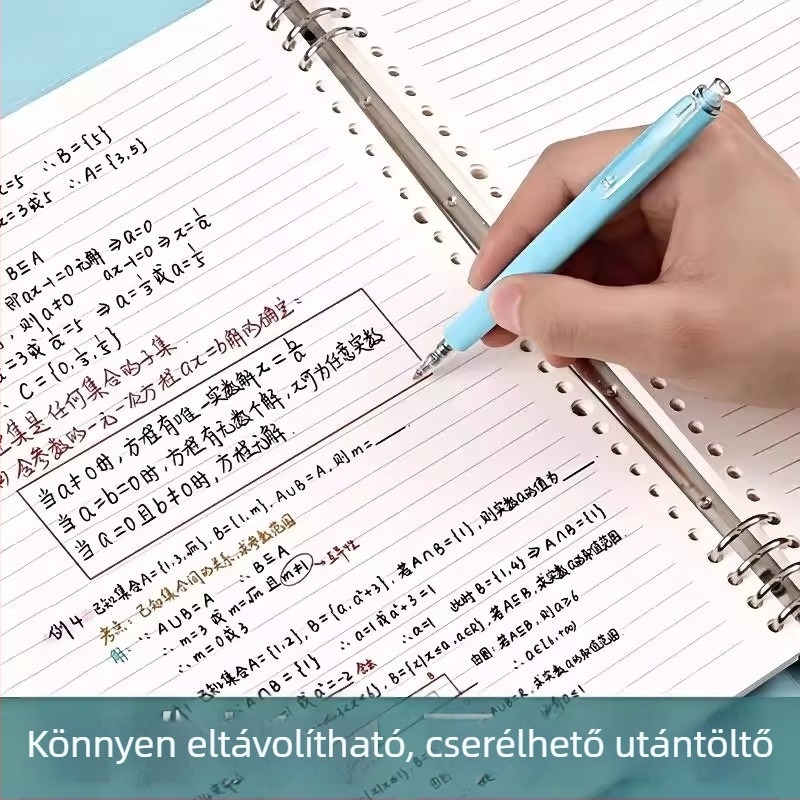 x=5 ∴B={5}
x=3或5 ∴A={3,5}
B⊆A
即ax-1=0无解 ⇒a=0
则a≠0 ax-1=0 ⇒ x=1/a
=3或1/a=5 ⇒ a=1/3或a=1/5
∴ C={0,1/3,1/5}
空集是任何集合的子集.
含参数的一元一次方程 ax=b解的确定:
当a≠0时,方程有唯一实数解x=b/a
当a=b=0时,方程有无数个解,x可为任意实数
当a=0且b≠0时,方程无解.
例4 已知集合A={1,3,√m}, B={1,m}, A∪B=A, 则m=____.
考点:已知集合间的关系,求参数范围
解: ∵ A∪B=A ∴B⊆A
∴ m=3 或 m=√m 且 m≠1 → 互异性
∴ m=0或3
已知集合A={1,2}, B={a,a²+3}, 若A∩B={1}, 则实数a的值为____
A∩B={1} ∴ a=1或a²+3=1
或a²=-2 舍去 ∴a=1 此时B={1,4} ⇒ A∩B={1}
B={x|x≤a,a∈R}, 若A⊆B, 求实数a的取值范围.
由图:若A⊆B, 则a≥6
∴ a∈[6,+∞)
求实数a的取值范围.
Könnyen eltávolítható, cserélhető utántöltő